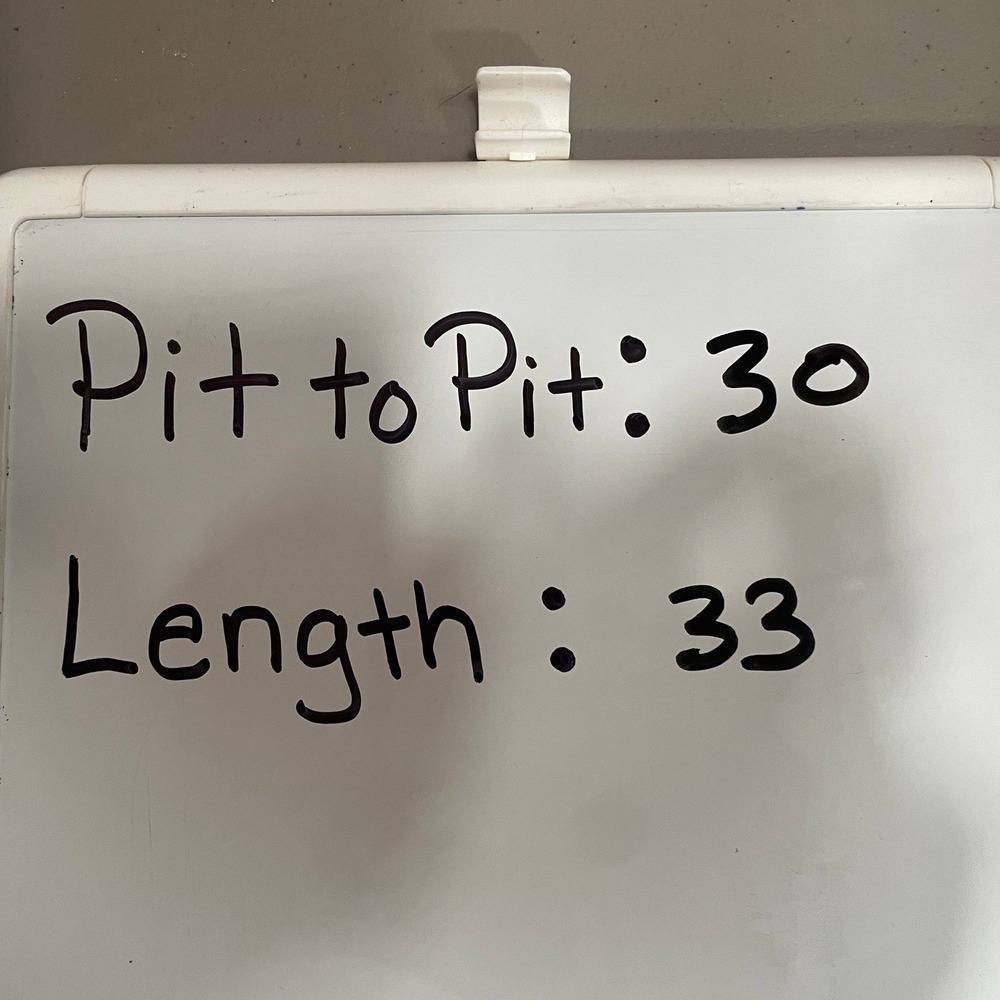 Pit to Pit: 30
Length: 33